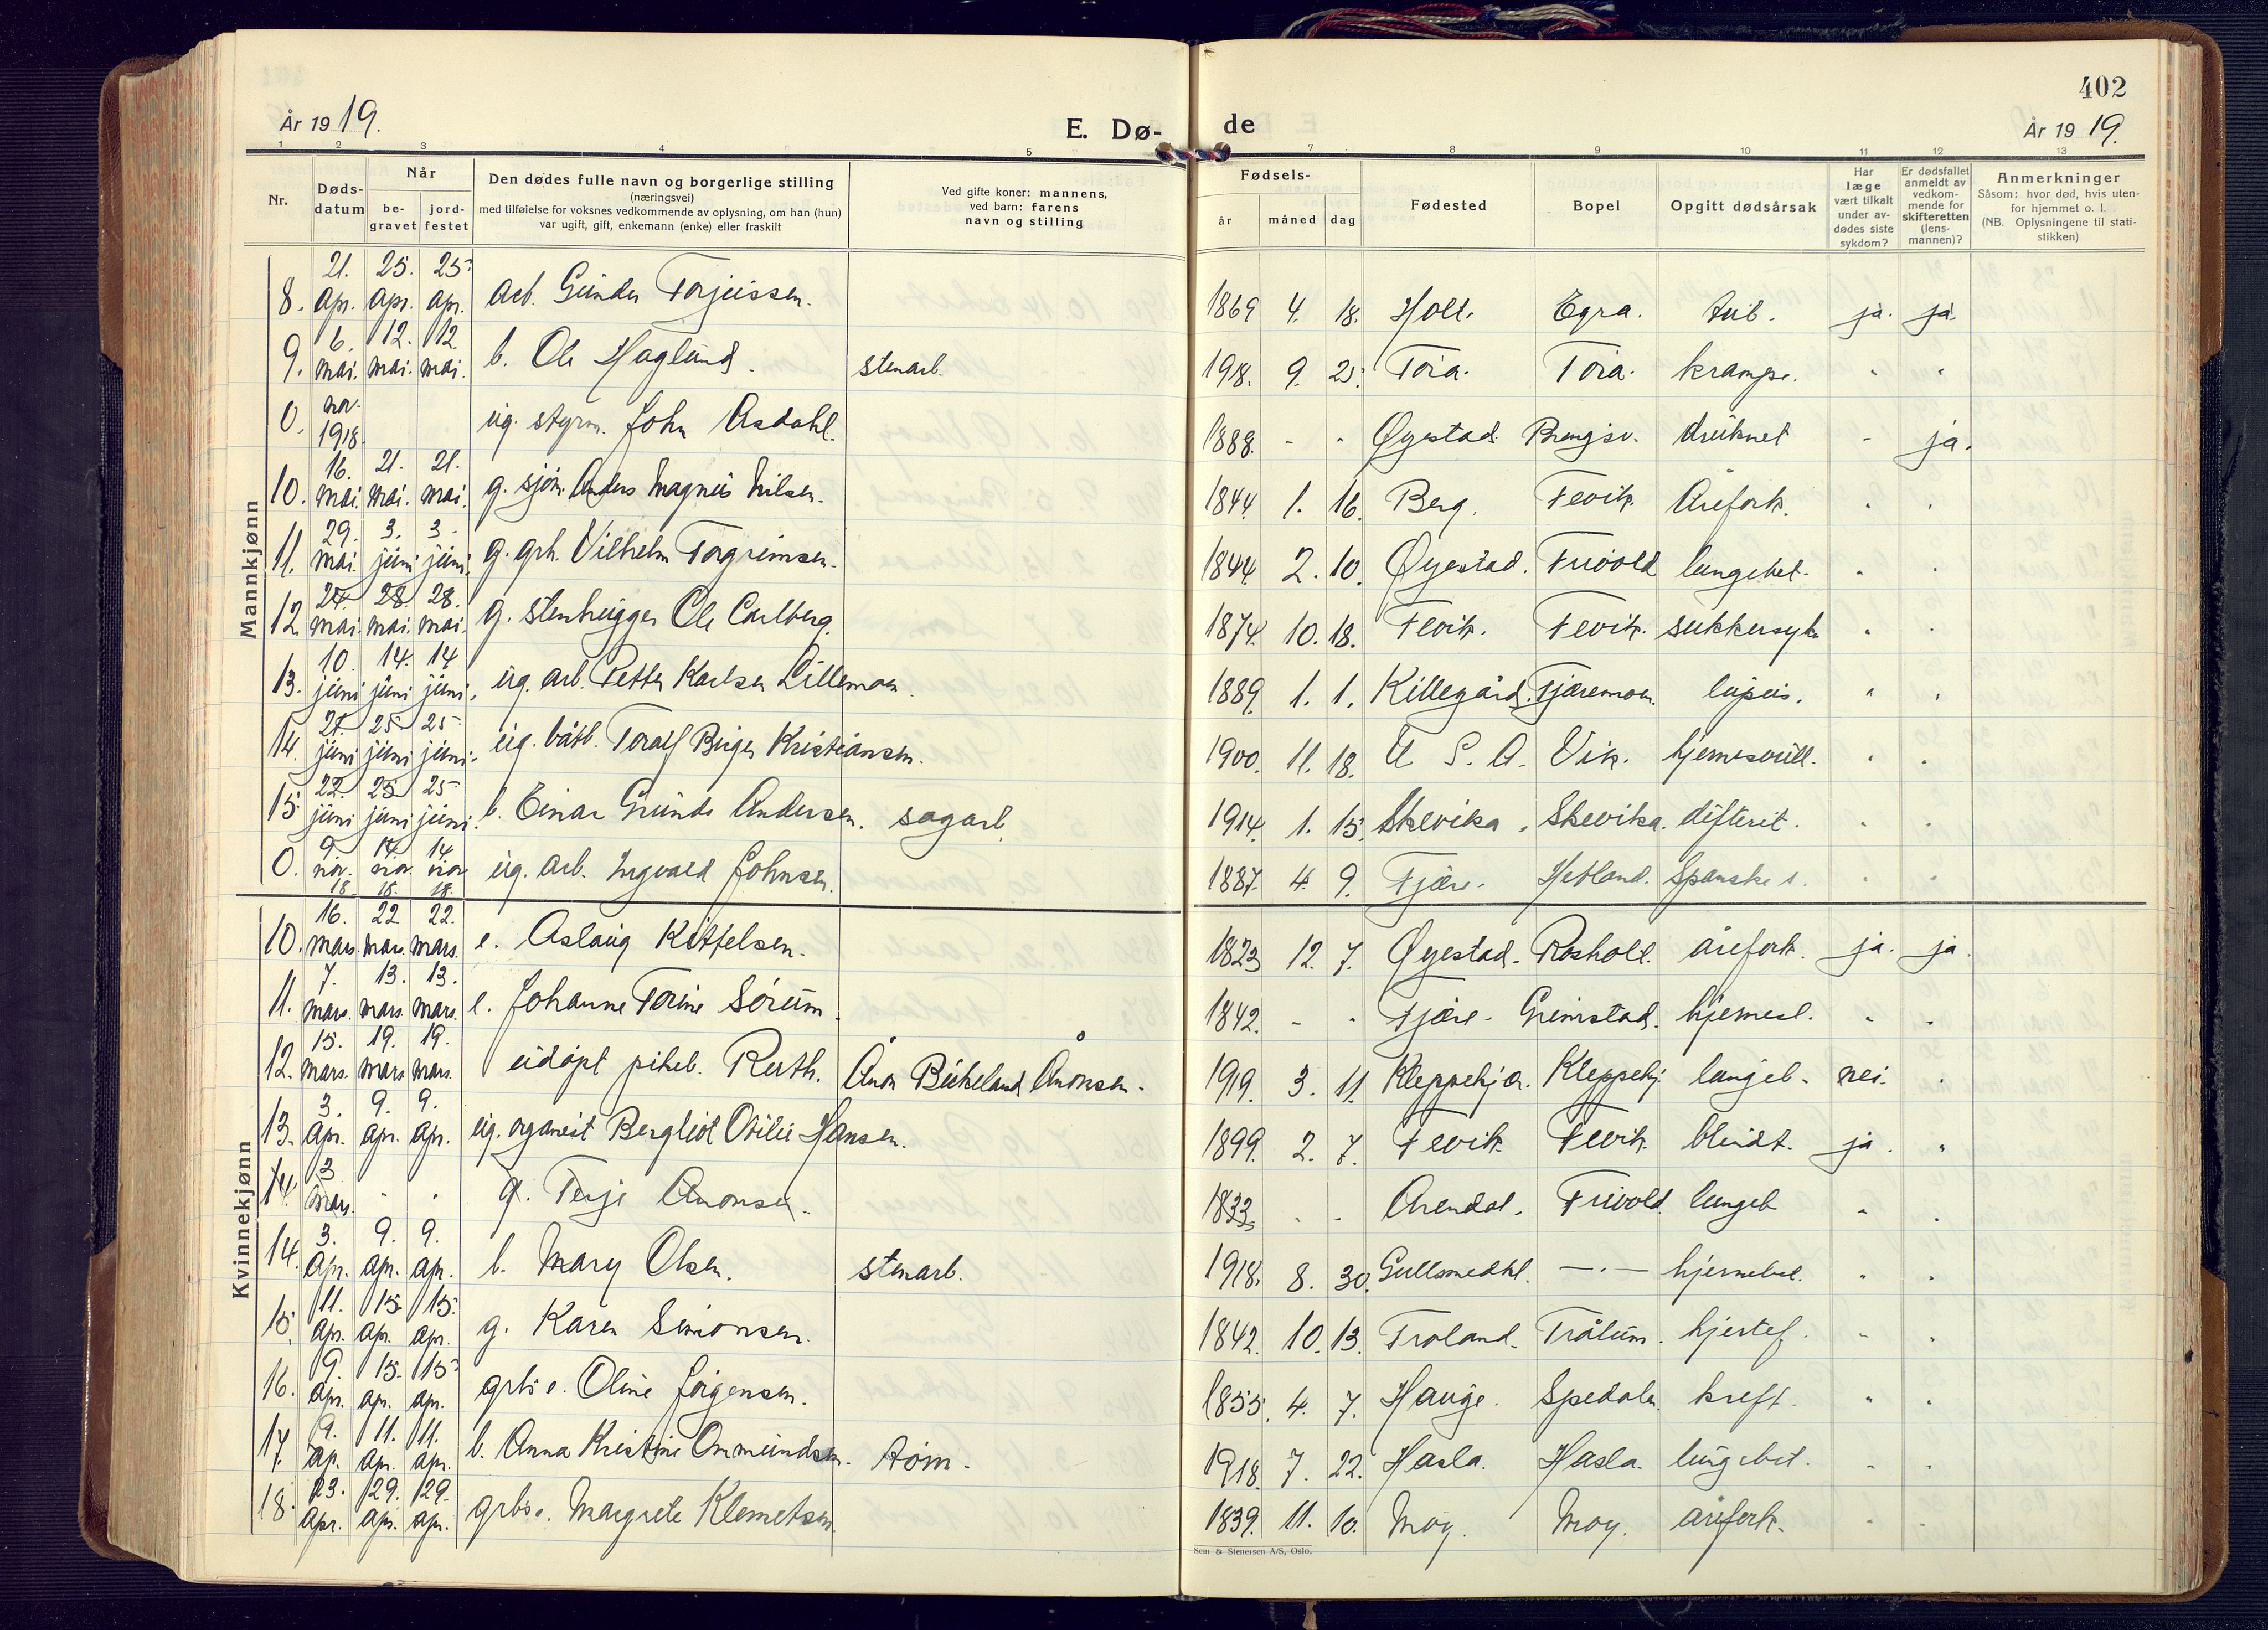 402
År 1919.
E. Dø-de
År 1919.
1 2 3 4 5 7 8 9 10 11 12 13
Nr.
Dødsdatum
Når
begravet
jordfestet
Den dødes fulle navn og borgerlige stilling
(næringsvei)
med tilføielse for voksnes vedkommende av oplysning, om han (hun)
var ugift, gift, enkemann (enke) eller fraskilt
Ved gifte koner: mannens,
ved barn: farens
navn og stilling
Fødsels-
år måned dag
Fødested
Bopel
Opgitt dødsårsak
Har
læge
vært tilkalt
under av-
dødes siste
sykdom?
Er dødsfallet
anmeldt av
vedkom-
mende for
skifteretten
(lens-
mannen)?
Anmerkninger
Såsom: hvor død, hvis uten-
for hjemmet o. l.
(NB. Oplysningene til stati-
stikken)
Mannkjønn
8. 21. apr. 25. apr. 25. apr. arb. Gunder Torjussen. 1869 4. 18. Holt. Egra. tub. ja. ja.
9. 6. mai. 12. mai. 12. mai. b. Ole Haglund. stenarb. 1918. 9. 25. Tora. Tora. krampe. " "
0. nov. 1918. ug. styrm. John Asdahl. 1888. - - Øyestad. Brengsv. druknet - ja.
10. 16. mai. 21. mai. 21. mai. g. sjøm. Anders Magnus Nilsen. 1844. 1. 16. Berg. Fevik. Årefork. " "
11. 29. mai. 3. juni. 3. juni. g. grh. Vilhelm Torgrimsen. 1844. 2. 10. Øyestad. Frivold lungebet. " "
12. 24. mai. 28. mai. 28. mai. g. stenhugger Ole Carlberg. 1874. 10. 18. Fevik. Fevik. sukkersyke " "
13. 10. juni 14. juni 14. juni. ug. arb. Petter Karlsen Lillemoen. 1889. 1. 1. Killegård. Tjæremoen. lupus. " "
14. 21. juni 25 juni 25 juni. ug. båtb. Toralf Birger Kristiansen. 1900. 11. 18. U. S. A. Vik. hjernesvull. " "
15. 22. juni 25 juni 25 juni. b. Einar Gunde Andersen. sagarb. 1914. 1. 15. Skevika. Skevika. difterit. " "
0. 9 nov. 18 14 nov. 18. 14 nov 18. ug. arb. Ingvald Johnsen. 1887. 4. 9. Fjære. Hetland. Spanske s. " "
Kvinnekjønn
10. 16. mars. 22 mars. 22. mars. e. Aslaug Kittelsen. 1823 12. 7. Øyestad. Rosholt. årefork. ja. ja.
11. 7. mars. 13. mars. 13. mars. e. Johanne Torine Sørum. 1842. - - Fjære. Grimstad. hjernesl. " "
12. 15. mars. 19. mars 19. mars. udøpt pikeb. Ruth. Ånon Birkeland Ånonsen. 1919. 3. 11. Kleppekjær. Kleppekj. lungeb. nei. "
13. 3. apr. 9. apr. 9. apr. ug. organist Bergliot Otilie Hansen. 1899. 2. 7. Fevik. Fevik. blindt. ja. "
14. 3 mars. " " g. Terje Anonsen. 1833. - - Arendal. Frivold. lungeb " "
14. 3. apr. 9. apr. 9. apr. b. Mary Olsen. stenarb. 1918. 8. 30. Gullsmedkl. —"— hjernebet. " "
15. 11. apr. 15. apr. 15. apr. g. Karen Simonsen. 1842. 10. 13. Froland. Trålum. hjertef. " "
16. 9. apr. 15. apr. 15. apr. grbs e. Oline Jørgensen. 1855. 4. 7. Hauge. Spedalen. kreft. " "
17. 9. ap. 11. apr. 11. apr. b. Anna Kristine Ommundsen. tøm. 1918. 7. 22. Hasla. Hasla. lungebet. " "
18. 23. apr. 29. apr. 29. apr. grbs e. Margrete Klemetsen. 1839. 11. 10. Moy. Moy. årefork. " "
Sem & Stenersen A/S, Oslo.